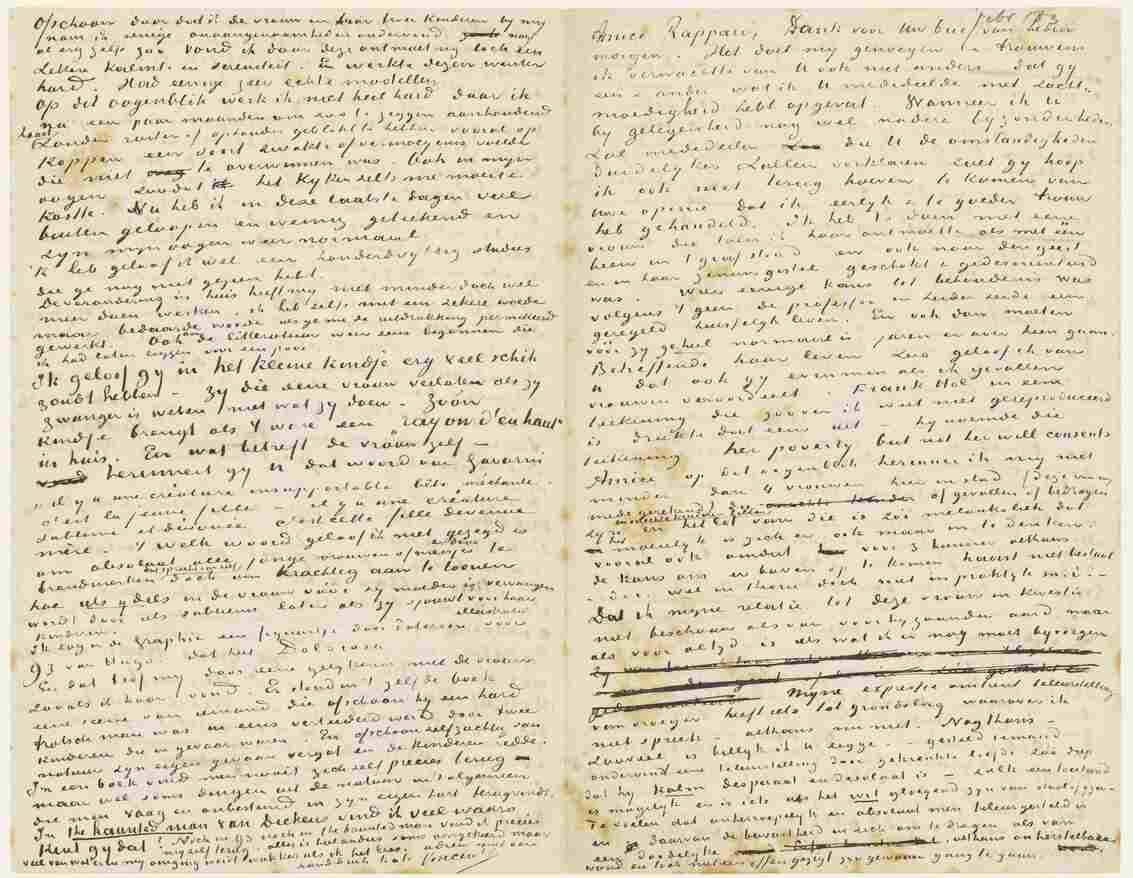 Ofschoon door dat ik de vrouw en haar twee kinderen by my
nam ik eenige onaangenaamheden ondervond nog
al erg zelfs zoo vond ik door deze ontmoeting toch een
zekere kalmte en sereniteit. En werkte dezen winter
hard. Had eenige zeer echte modellen
op dit oogenblik werk ik niet heel hard daar ik
na een paar maanden om zoo te zeggen aanhoudend
haast
zonder rusten of ophouden geblokt te hebben vooral op
koppen een soort zwakte of vermoeienis voelde
die niet te overwinnen was. Ook in myn
oogen zoodat het kyken zelfs me moeite
kostte. Nu heb ik in deze laatste dagen veel
buiten geloopen en weinig geteekend en
zyn myn oogen weer normaal
Ik heb geloof ik wel een honderdvyftig studies
die ge nog niet gezien hebt.
De verandering in huis heeft my niet minder doch wel
meer doen werken. ik heb zelfs met een zekere woede
maar bedaarde woede als ge me de uitdrukking permitteerd
gewerkt. Ook aan de litteratuur weer eens begonnen die
ik had laten liggen voor een poos.
Ik geloof gy in het kleine kindje erg veel schik
zoudt hebben – Zy die eene vrouw verlaten als zy
zwanger is weten niet wat zy doen. Zoo'n
kindje brengt als 't ware een "rayon d'en haut"
in huis. En wat betreft de vrouw zelf –
herinnert gy U dat woord van Gavarni
"il y a une créature insupportable bête méchante.
c'est la jeune fille – il y a une créature
sublime et dévouée c'est cette fille devenue
mère. 't welk woord geloof ik niet gezegd is
om absoluut alle jonge vrouwen of meisjes te
brandmerken doch om krachtig aan te toonen
hoe iets ydels in de vrouw vóór zy moeder is vervangen
wordt door iets subliems later als zy sjouwt voor haar
kinderen. illustratie
Ik zag in de Graphic een figuurtje door Paterson voor
93 van Hugo dat het Dolorosa
En dat trof my door eene gelykenis met de vrouw
zooals ik haar vond. Er stond in't zelfde boek
eene scene van iemand die ofschoon hy een hard
trotsch man was in eens verteederd werd door twee
kinderen die in gevaar waren. En ofschoon zelfzuchtig van
natuur zyn eigen gevaar vergat en de kinderen redde.
In een boek vindt men nooit zichzelf precies terug –
maar wel soms dingen uit de natuur in't algemeen
die men vaag en onbestemd in zyn eigen hart terugvindt.
In the haunted man van Dickens vind ik veel waars,
kent gy dat! Noch in 93 noch in the haunted man vond ik precies
myself terug alles is heel anders soms omgekeerd maar
veel van wat er in my omging wordt wakker als ik het lees. adieu met een
handdruk tt Vincent
febr
Amice Rappard, Dank voor Uw brief van heden
morgen. Het doet my genoegen & trouwens
ik verwachtte van U ook niet anders dat gy
een & ander wat ik U mededeelde met zacht-
moedigheid hebt opgevat. Wanneer ik U
by gelegenheid nog wel nadere byzonderheden
zal mededeelen die U de omstandigheden
duidelyker zullen verklaren zult gy hoop
ik ook niet terug hoeven te komen van
Uwe opinie dat ik eerlyk & te goeder trouw
heb gehandeld. Ik heb te doen met eene
vrouw die toen ik haar ontmoette als met één
been in 't graf stond en ook naar den geest
en in haar zenuwgestel geschokt & gedesorienteerd
was. Wier eenige kans tot behoudenis was
volgens 't geen de professor in Leiden zeide een
geregeld huisselyk leven. En ook dan moeten
vóór zy geheel normaal is jaren er over heen gaan.
Betreffende haar leven zoo geloof ik van
U dat ook gy evenmin als ik gevallen
vrouwen veroordeelt. Frank Hol in eene
teekening die zoover ik weet niet gereproduceerd
is drukte dat eens uit – hy noemde die
teekening her poverty but not her will consents
Amice op dit oogenblik herinner ik my niet
minder dan 4 vrouwen hier in stad (deze vrouw
mede gerekend) die of gevallen of bedrogen
zyn en onechte kinderen hebben
en het lot van die is zóó melankoliek dat
het moeielyk is zich er ook maar in te denken.
vooral ook omdat voor 3 hunner althans
de kans om er boven op te komen haast niet bestaat
– d.i. wel in theorie doch niet in praktyk m.i. –
Dat ik myne relatie tot deze vrouw in kwestie
niet beschouw als van voorbygaanden aard maar
als voor altyd is iets wat ik er nog moet byvoegen
Myne expressie omtrent teleurstelling
van vroeger heeft iets tot grondslag waarover ik
niet spreek – althans nu niet. Nogthans –
zooveel is billyk ik U zegge. – gesteld iemand
ondervindt eene teleurstelling door gekrenkte liefde zóó diep
dat hy kalm desperaat en desolaat is – zulk een toestand
is mogelyk en is iets als het wit gloeiend zyn van staal of yzer.
Te voelen dat onherroepelyk en absoluut men teleurgesteld is
en daarvan de bewustheid in zich om te dragen als van
een doodelyke althans onherstelbare
wond en toch met een effen gezigt zyn gewone gang te gaan.